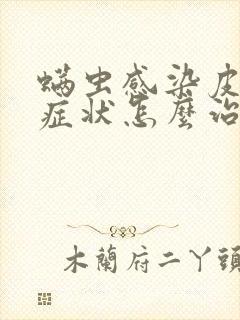 螨虫感染皮
症状怎麼治
木蘭府二丫頭